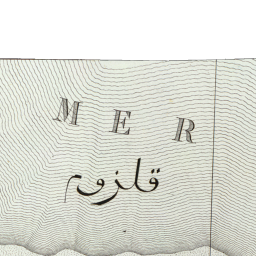 MER
قلزوم